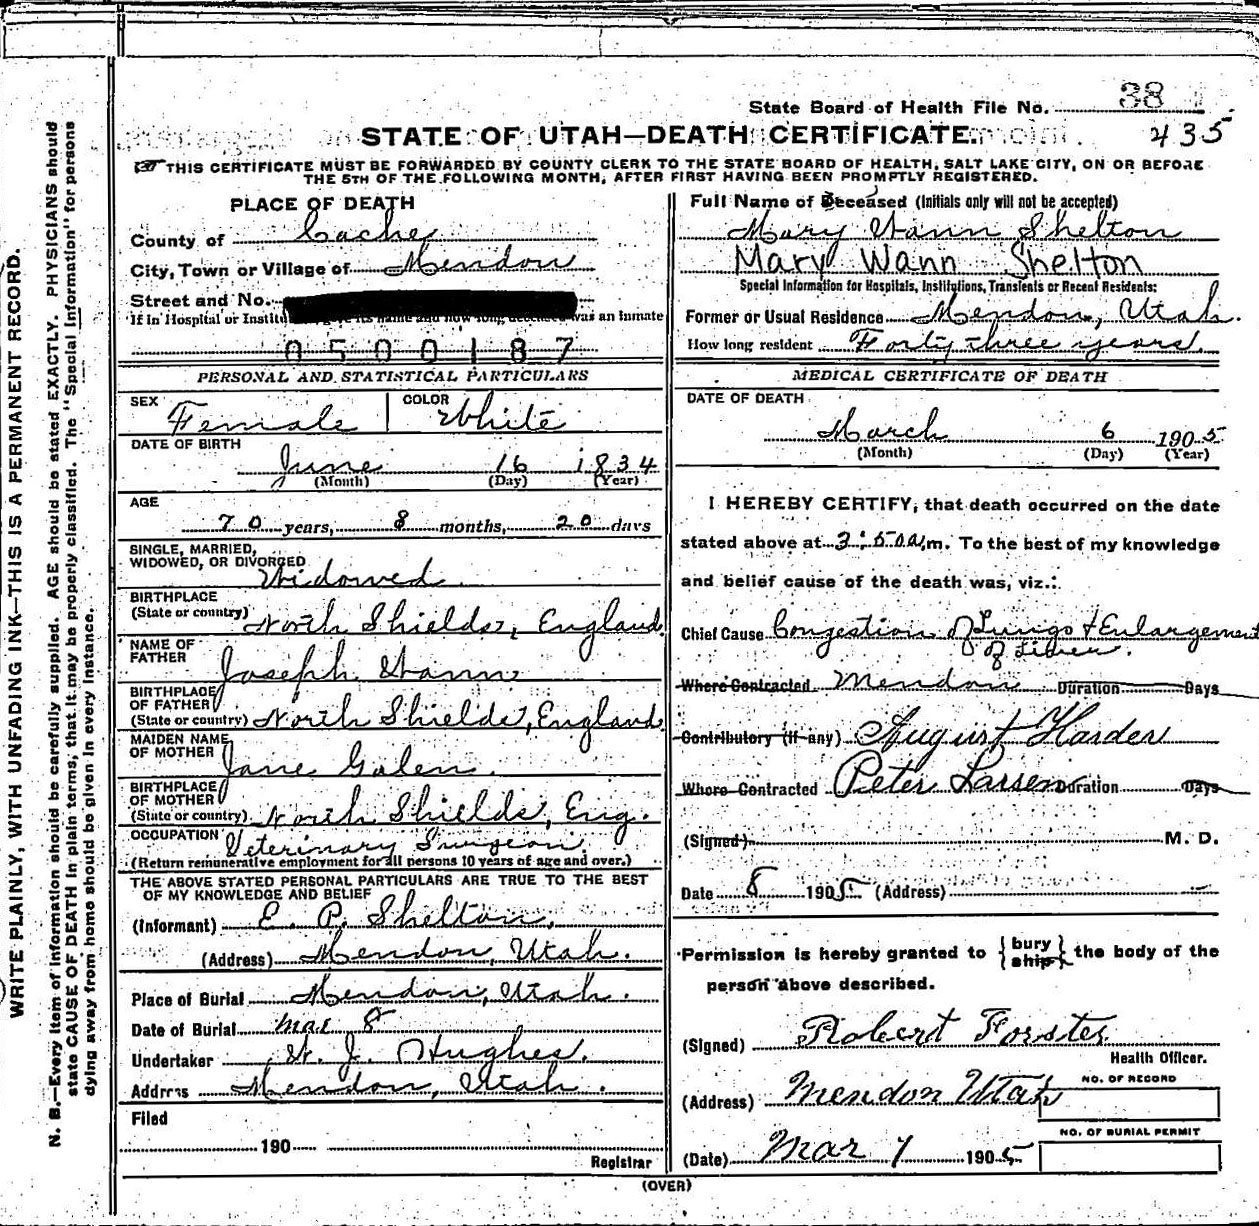 State Board of Health File No. 38
STATE OF UTAH—DEATH CERTIFICATE. 435
THIS CERTIFICATE MUST BE FORWARDED BY COUNTY CLERK TO THE STATE BOARD OF HEALTH, SALT LAKE CITY, ON OR BEFORE
THE 5TH OF THE FOLLOWING MONTH, AFTER FIRST HAVING BEEN PROMPTLY REGISTERED.
PLACE OF DEATH
County of Cache
City, Town or Village of Mendon
Street and No.
If in Hospital or Institu its name and how long deceased was an inmate
0500187
Full Name of Deceased (Initials only will not be accepted)
Mary Wann Shelton
Mary Wann Shelton
Special Information for Hospitals, Institutions, Transients or Recent Residents:
Former or Usual Residence Mendon, Utah.
How long resident Forty three years.
PERSONAL AND STATISTICAL PARTICULARS
SEX Female COLOR White
DATE OF BIRTH
June 16 1834
(Month) (Day) (Year)
AGE
70 years, 8 months, 20 days
SINGLE, MARRIED,
WIDOWED, OR DIVORCED Widowed
BIRTHPLACE
(State or country) North Shields, England
NAME OF
FATHER Joseph Wann
BIRTHPLACE
OF FATHER
(State or country) North Shields, England
MAIDEN NAME
OF MOTHER Jane Galen.
BIRTHPLACE
OF MOTHER
(State or country) North Shields, Eng.
OCCUPATION Veterinary Surgeon
(Return remunerative employment for all persons 10 years of age and over.)
THE ABOVE STATED PERSONAL PARTICULARS ARE TRUE TO THE BEST
OF MY KNOWLEDGE AND BELIEF
(Informant) E. P. Shelton,
(Address) Mendon, Utah.
Place of Burial Mendon, Utah.
Date of Burial Mar 8
Undertaker W. J. Hughes.
Address Mendon, Utah.
Filed
190
Registrar
MEDICAL CERTIFICATE OF DEATH
DATE OF DEATH
March 6 1905
(Month) (Day) (Year)
I HEREBY CERTIFY, that death occurred on the date
stated above at 3:50 a.m. To the best of my knowledge
and belief cause of the death was, viz.:
Chief Cause Congestion of Lungs & Enlargement
of Liver.
Where Contracted Mendon Duration Days
Contributory (if any) August Harder
Where Contracted Peter Larsen Duration Days
(Signed) M. D.
Date 8 1905 (Address)
Permission is hereby granted to { bury ship } the body of the
person above described.
(Signed) Robert Forster
Health Officer.
(Address) Mendon Utah
NO. OF RECORD
NO. OF BURIAL PERMIT
(Date) Mar 7 1905
(OVER)
WRITE PLAINLY, WITH UNFADING INK—THIS IS A PERMANENT RECORD.
N. B.—Every item of information should be carefully supplied. AGE should be stated EXACTLY. PHYSICIANS should
state CAUSE OF DEATH in plain terms, that it may be properly classified. The "Special Information" for persons
dying away from home should be given in every instance.